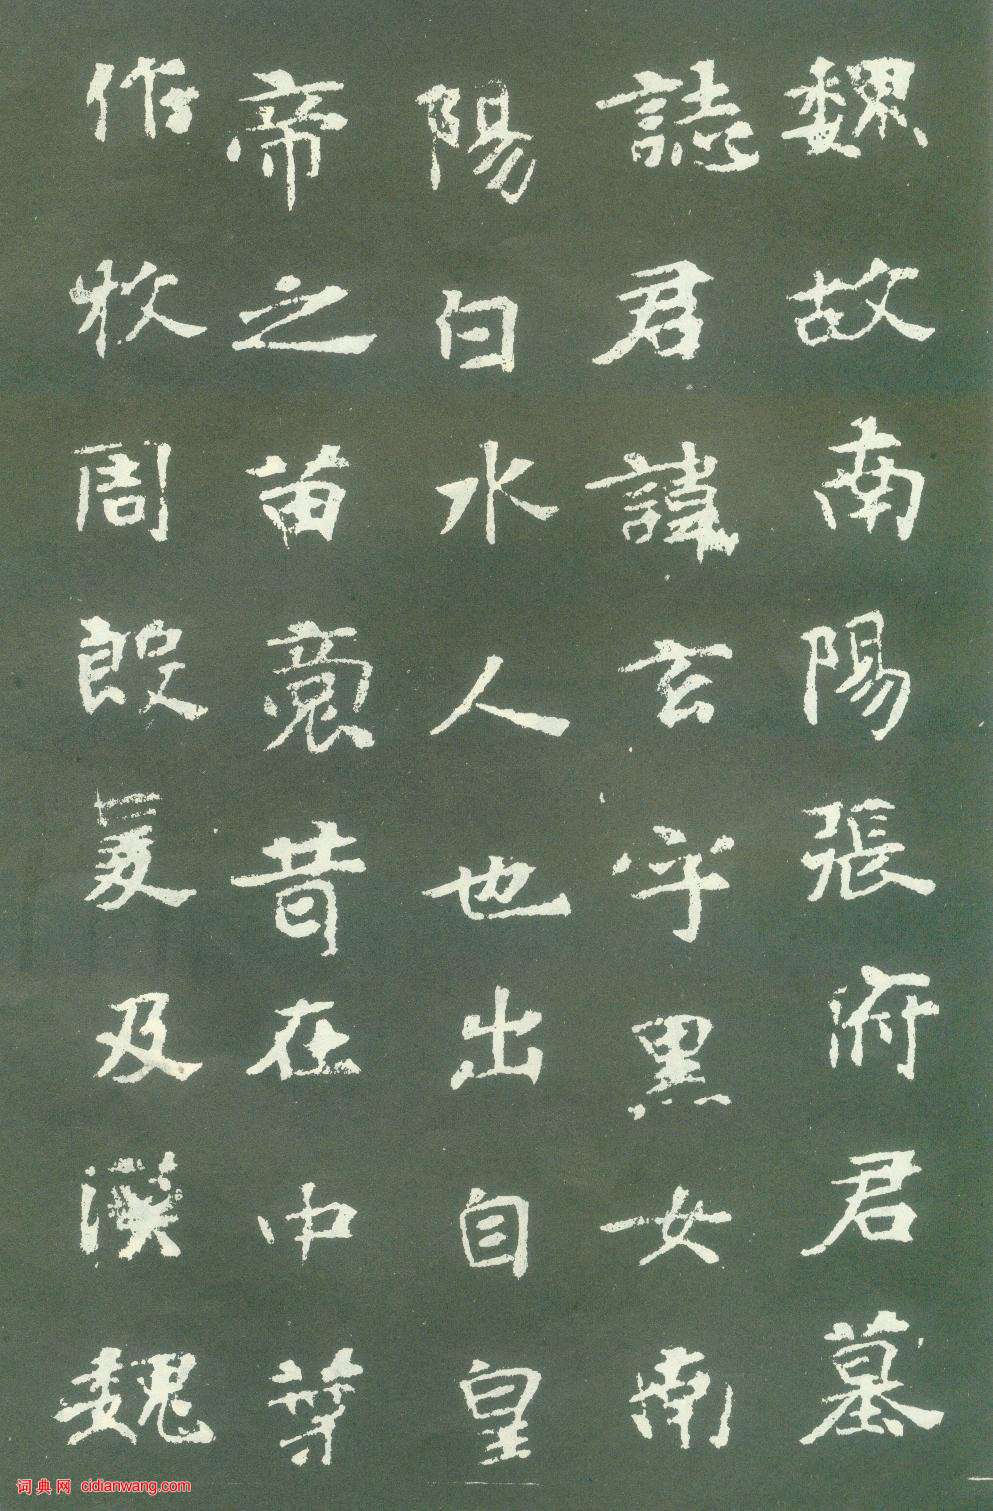 魏故南陽張府君墓
誌君諱玄字黑女南
陽白水人也出自皇
帝之苗裔昔在中葉
作牧周殷爰及漢魏
词典网 cidianwang.com